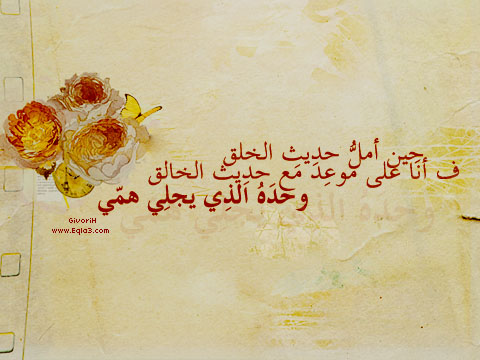 حين أملُّ حديث الخلق
ف أنَا على موعِدَ مَع حديث الخالق
وحدَهُ الذِي يجلِي همّي
GivoriH
www.Eqla3.com